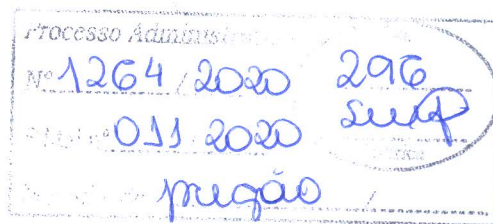 Processo Administra
Nº 1264 / 2020 296
011 2020
pregão /